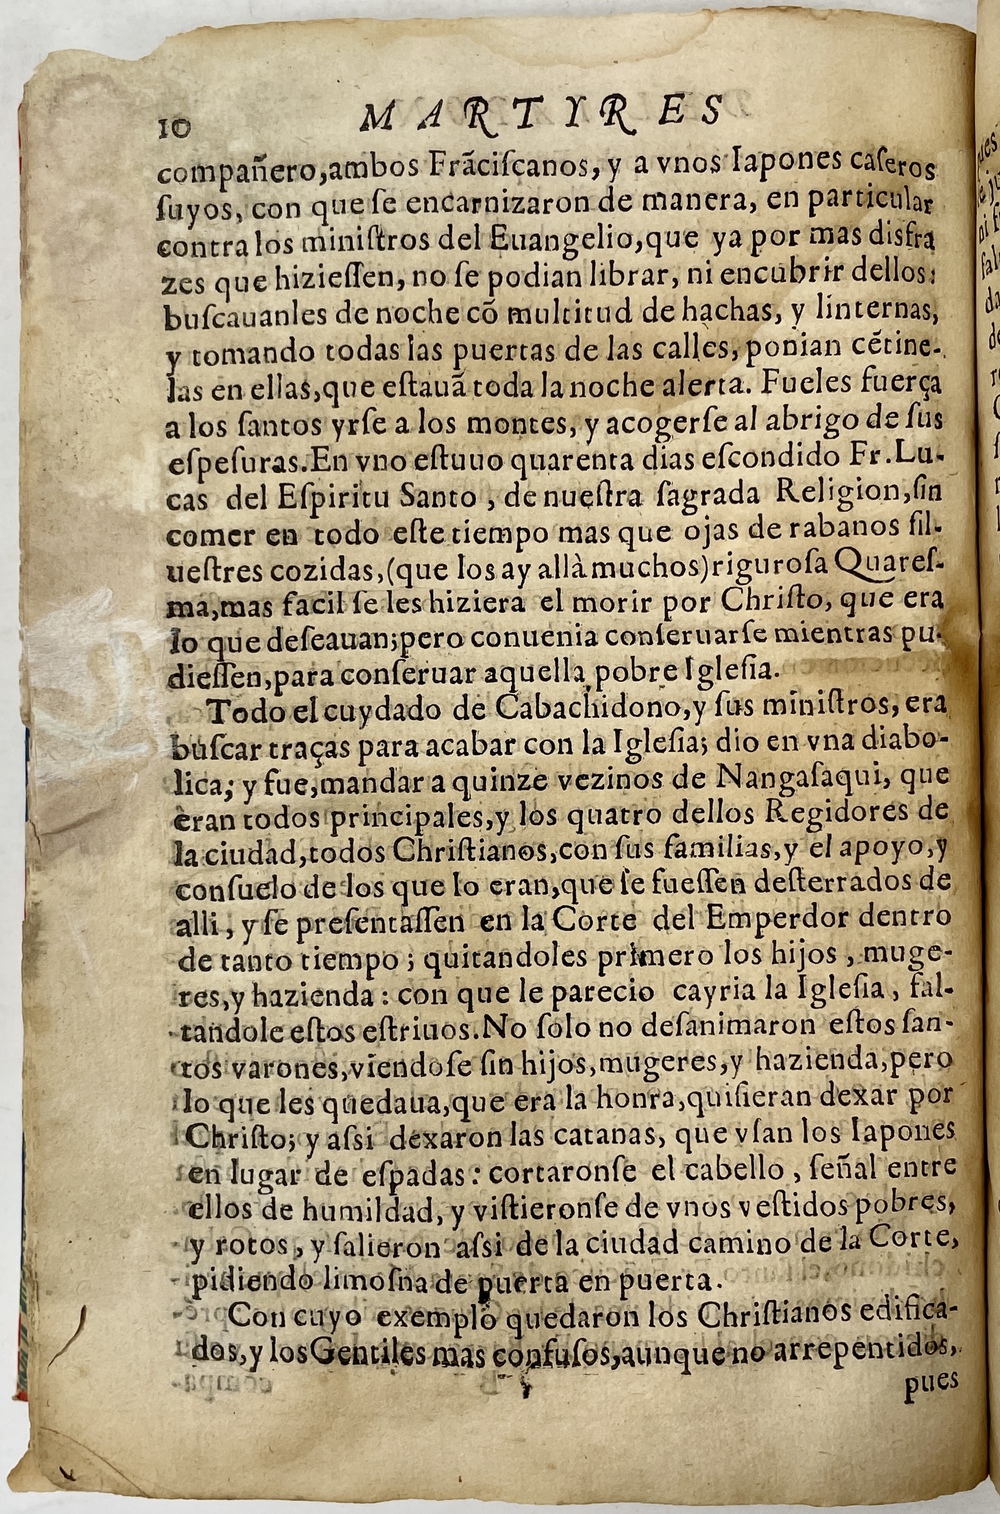 10 MARTYRES
compañero,ambos Frãciſcanos, y a vnos Iapones caſeros
ſuyos, con que ſe encarnizaron de manera, en particular
contra los miniſtros del Euangelio,que ya por mas disfra
zes que hizieſſen, no ſe podian librar, ni encubrir dellos:
buſcauanles de noche cõ multitud de hachas, y linternas,
y tomando todas las puertas de las calles, ponian cẽtine-
las en ellas,que eſtauã toda la noche alerta. Fueles fuerça
a los ſantos yrſe a los montes, y acogerſe al abrigo de ſus
eſpeſuras. En vno eſtuuo quarenta dias eſcondido Fr. Lu-
cas del Eſpiritu Santo , de nueſtra ſagrada Religion, ſin
comer en todo eſte tiempo mas que ojas de rabanos ſil-
ueſtres cozidas,(que los ay allà muchos) riguroſa Quareſ-
ma,mas facil ſe les hiziera el morir por Chriſto, que era
lo que deſeauan;pero conuenia conſeruarſe mientras pu-
dieſſen,para conſeruar aquella pobre Igleſia.
Todo el cuydado de Cabachidono,y ſus miniſtros, era
buſcar traças para acabar con la Igleſia; dio en vna diabo-
lica; y fue,mandar a quinze vezinos de Nangaſaqui, que
eran todos principales,y los quatro dellos Regidores de
la ciudad,todos Chriſtianos,con ſus familias,y el apoyo,y
conſuelo de los que lo eran,que ſe fueſſen deſterrados de
alli, y ſe preſentaſſen en la Corte del Emperdor dentro
de tanto tiempo ; quitandoles primero los hijos , muge-
res,y hazienda : con que le parecio cayria la Igleſia, fal-
tandole eſtos eſtriuos. No ſolo no deſanimaron eſtos ſan-
tos varones,viendoſe ſin hijos,mugeres,y hazienda,pero
lo que les quedaua,que era la honra,quiſieran dexar por
Chriſto; y aſsi dexaron las catanas, que vſan los Iapones
en lugar de eſpadas : cortaronſe el cabello , ſeñal entre
ellos de humildad, y viſtieronſe de vnos veſtidos pobres,
y rotos, y ſalieron aſsi de la ciudad camino de la Corte,
pidiendo limoſna de puerta en puerta.
Con cuyo exemplo quedaron los Chriſtianos edifica-
dos, y los Gentiles mas confuſos,aunque no arrepentidos,
pues